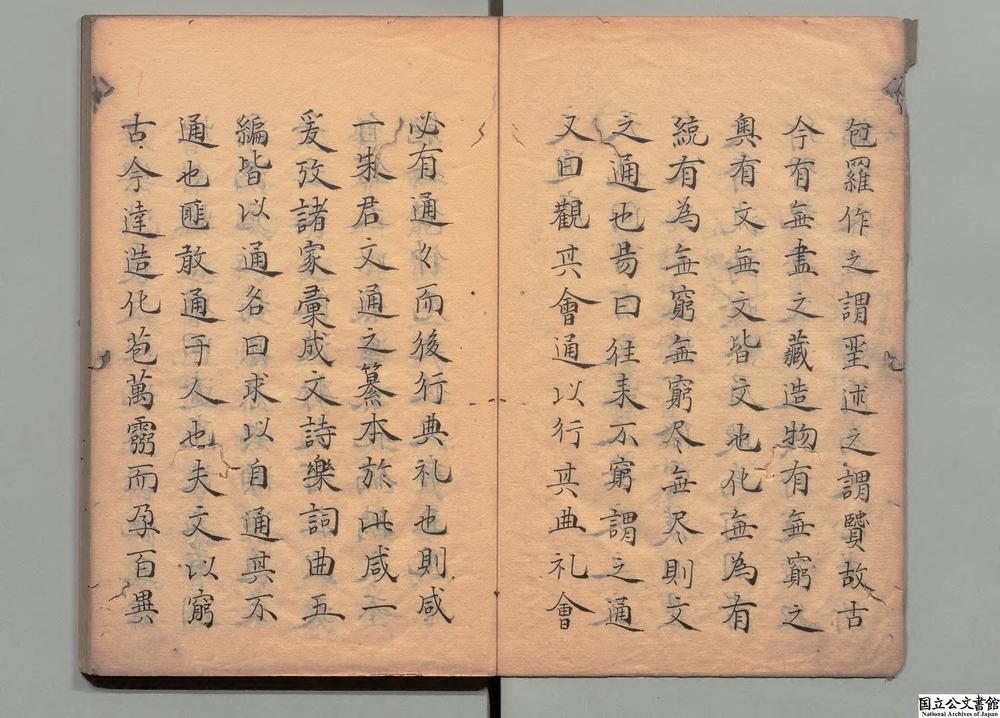 包羅作之謂聖述之謂賢故古
今有無盡之藏造物有無窮之
奧有文無文皆文也化無為有
統有為無窮無窮尽無尽則文
之通也易曰往来不窮謂之通
又曰觀其會通以行其典礼會
必有通々而後行典礼也則咸
一朱君文通之纂本於此咸一
爰攷諸家彙成文詩樂詞曲五
編皆以通名曰求以自通其不
通也匪敢通于人也夫文以窮
古今達造化苞萬霛而孕百異
国立公文書館
National Archives of Japan